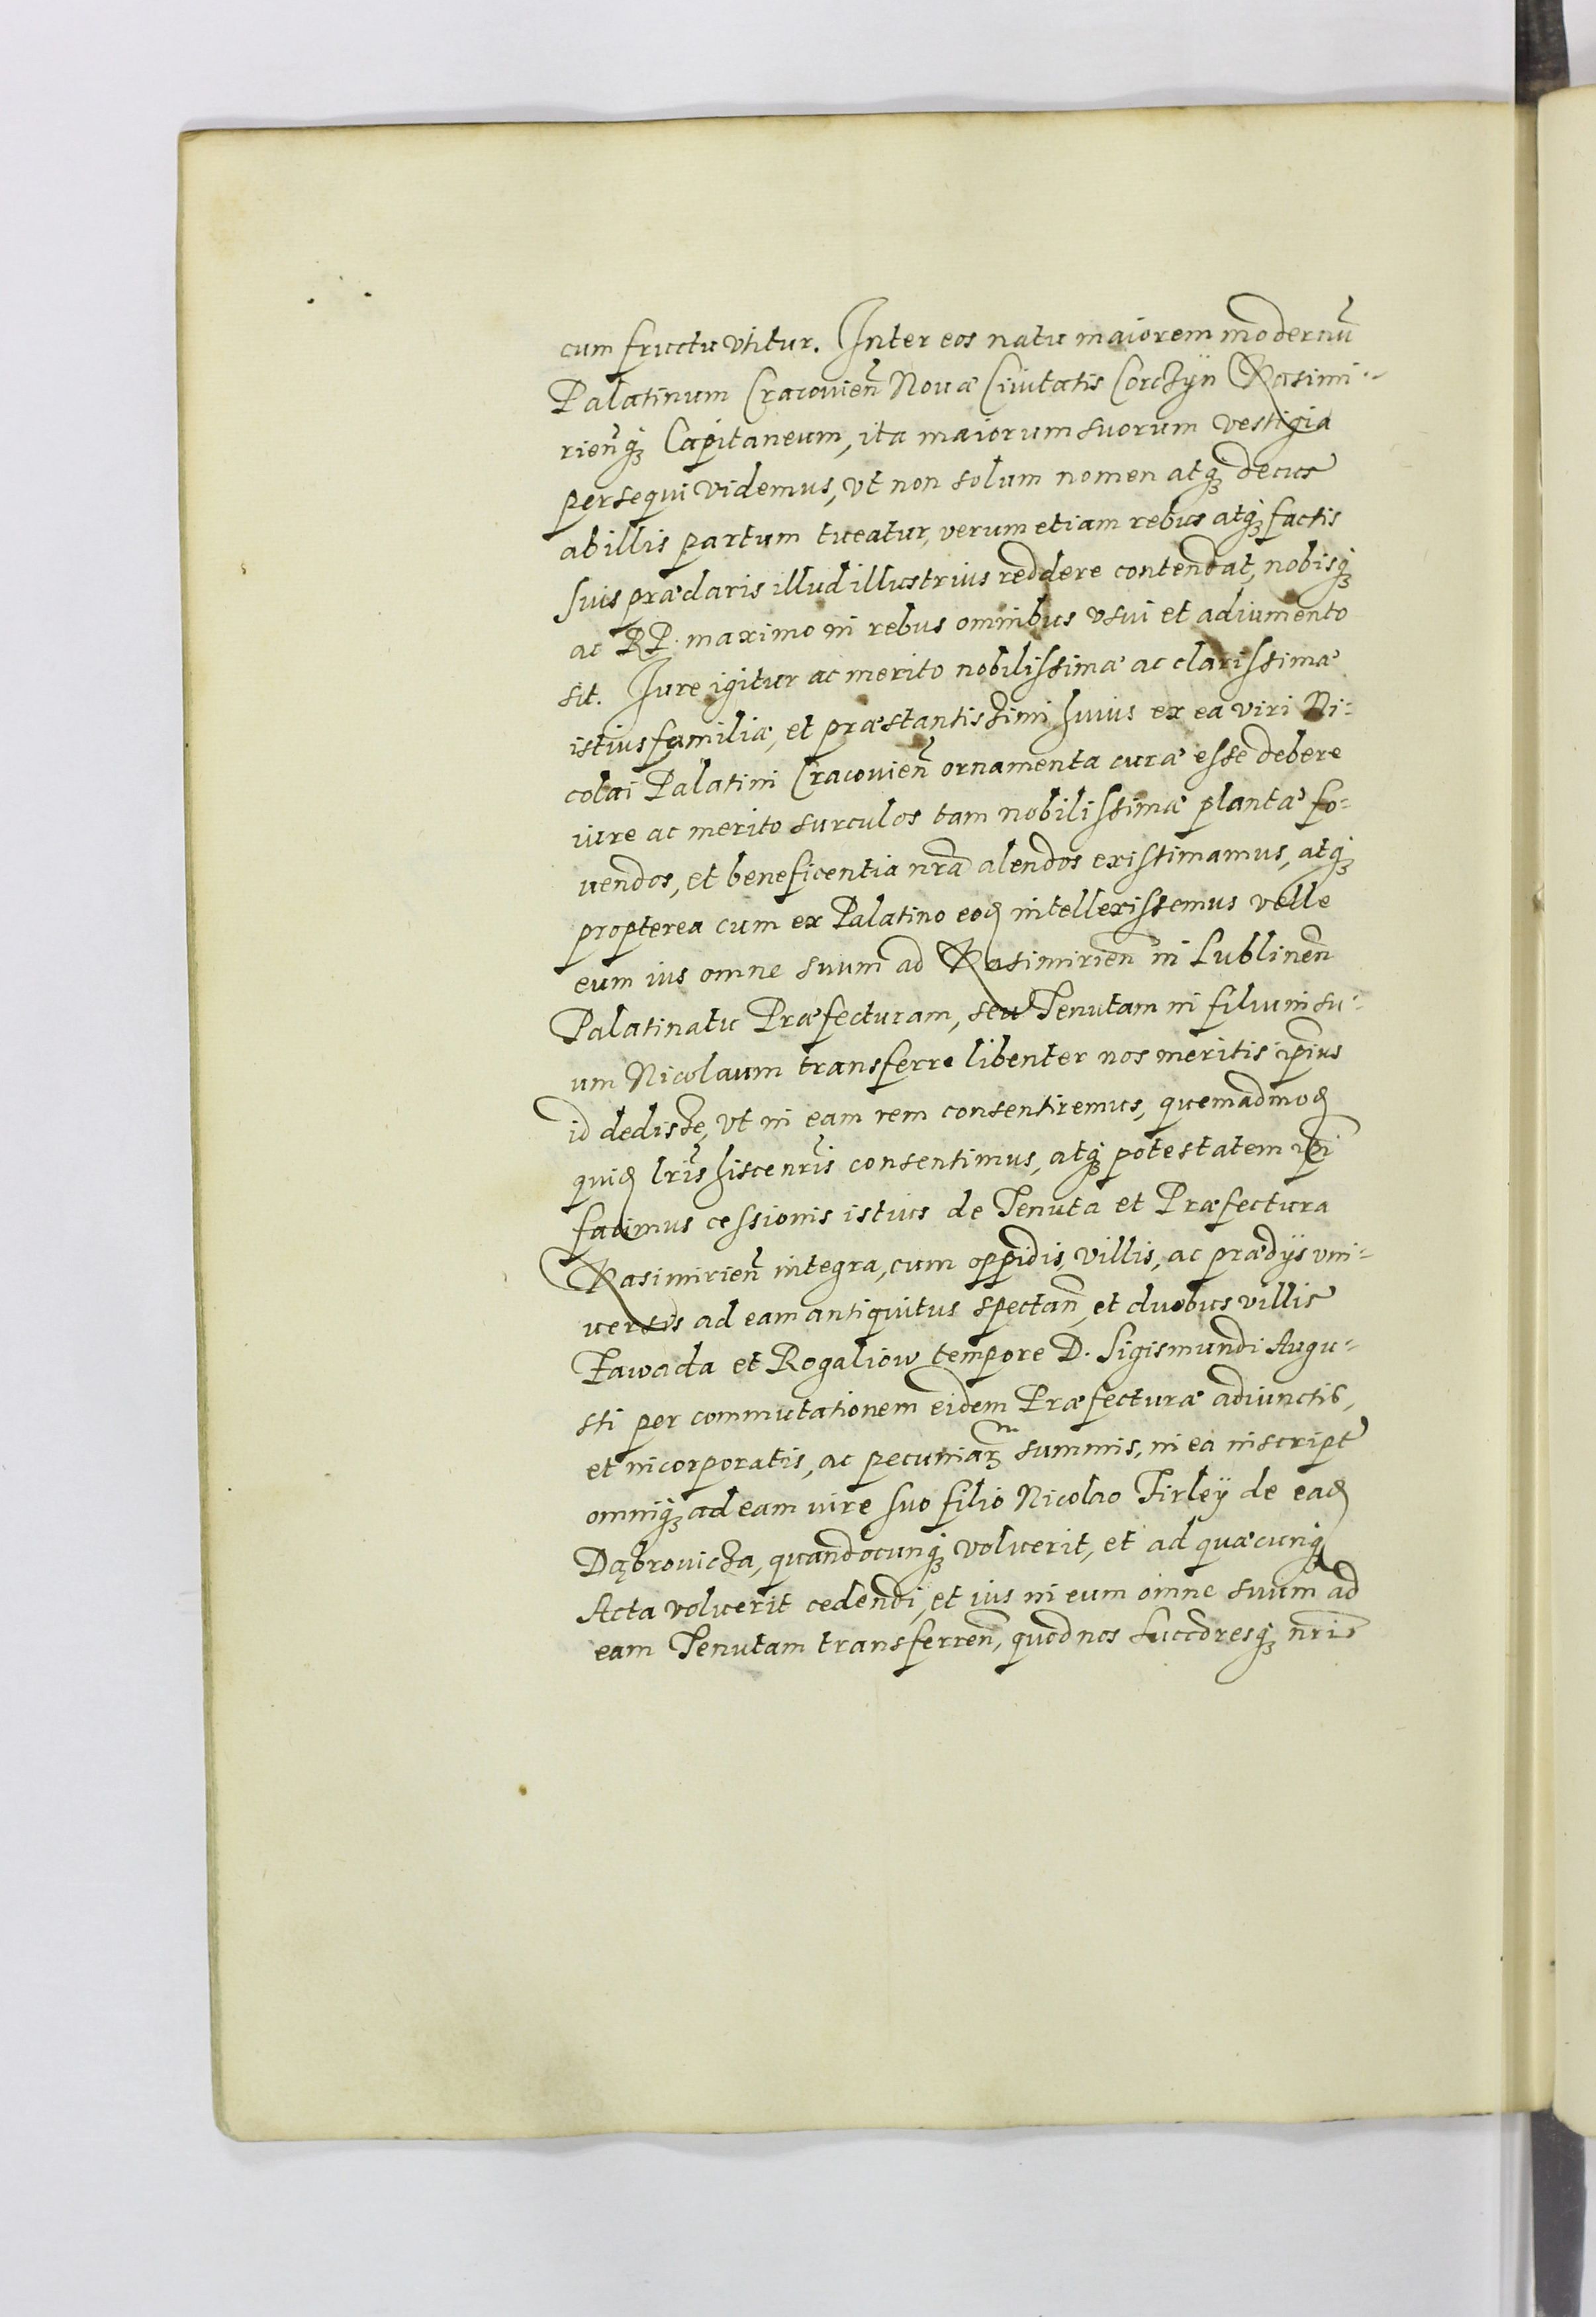 cum fructu vtitur. Inter eos natu maiorem modernū
Palatinum Cracovieñ Nouæ Ciuitatis Corczÿn Kasimi-
rieñq́ꝫ Capitaneum, ita maiorum suorum vestigia
persequi videmus, vt non solum nomen atq́ꝫ decus
ab illis partum tueatur, verum etiam rebus atq́ꝫ factis
suis præclaris illud illustrius reddere contendat, nobisq́ꝫ
ac RP. maximo in rebus omnibus vsui et adiumento
sit. Iure igitur ac merito nobilissimæ ac clarissimæ
istius familiæ, et præstantissimi huius ex ea viri Ni-
colai Palatini Cracovieñ ornamenta curæ esse debere
iure ac merito surculos tam nobilissimæ plantæ fo-
uendos, et beneficentia nrã alendos existimamus, atq́ꝫ
propterea cum ex Palatino eoꝺ intellexissemus velle
eum ius omne suum ad Kasimirieñ in Lublineñ
Palatinatu Præfecturam, seu Tenutam in filium su-
um Nicolaum transferre libenter nos meritis ip̃ius
id dedisse, vt in eam rem consentiremus, quemadmoꝺ
quiꝺ lrĩs hisce nrĩs consentimus, atq́ꝫ potestatem ip̃i
facimus cessionis istius de Tenuta et Præfectura
Kasimirieñ integra, cum oppidis, villis, ac prædÿs vni-
uersis ad eam antiquitus spectañ, et duobus villis
Zawada et Rogaliow tempore D. Sigismundi Augu-
sti per commutationem eidem Præfecturæ adiunctis,
et incorporatis, ac pecuniarꝫ summis, in ea inscript
omniq́ꝫ ad eam iure suo filio Nicolao Firleÿ de eaꝺ
Dąbrovicza, quandocunq́ꝫ voluerit, et ad quæcunq́ꝫ
Acta voluerit cedendi, et ius in eum omne suum ad
eam Tenutam transferreñ, quod nos Succõresq́ꝫ nrĩ